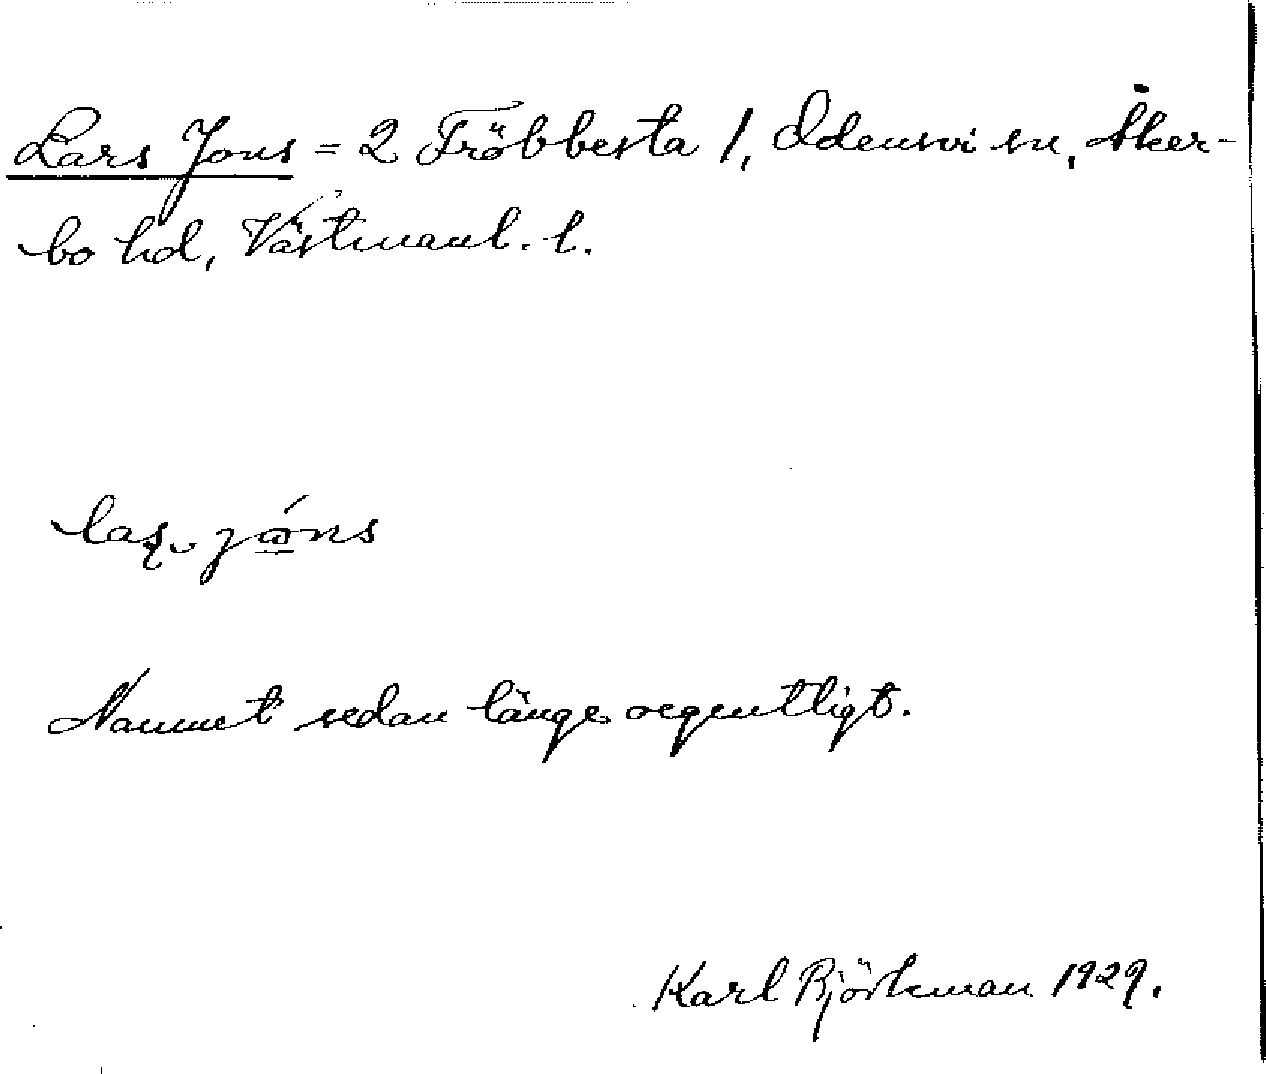 Lars Jons = 2 Tröbbesta 1, Odensvi sn, Åker-
bo hd, Västmanl. l.
Namnet sedan länge oegentligt.
Karl Björkman 1929.